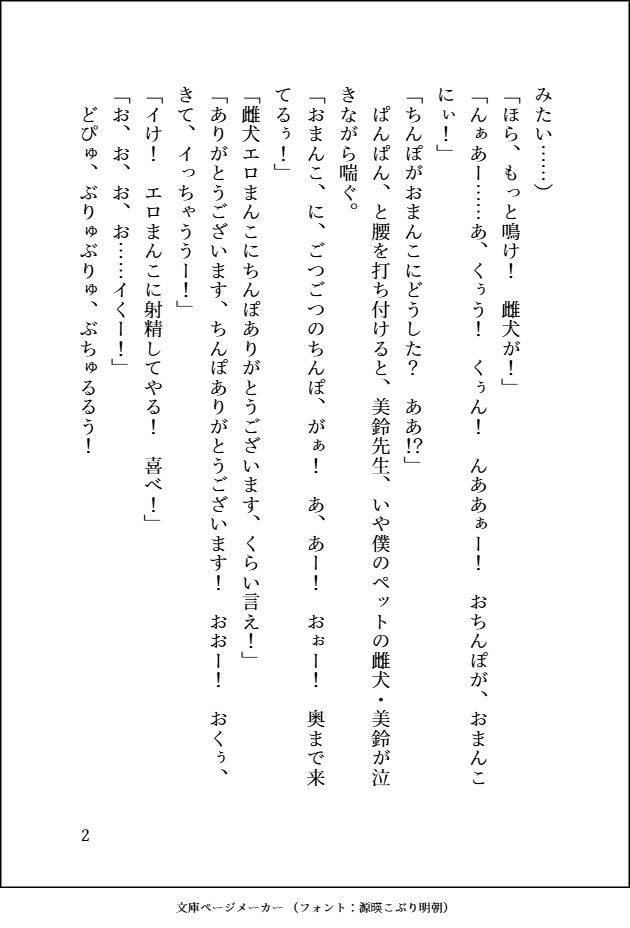 みたい……）
「ほら、もっと鳴け！　雌犬が！」
「んぁあー……あ、くぅう！　くぅん！　んああぁー！　おちんぽが、おまんこ
にぃ！」
「ちんぽがおまんこにどうした？　ああ!?」
　ぱんぱん、と腰を打ち付けると、美鈴先生、いや僕のペットの雌犬・美鈴が泣
きながら喘ぐ。
「おまんこ、に、ごつごつのちんぽ、がぁ！　あ、あー！　おぉー！　奥まで来
てるぅ！」
「雌犬エロまんこにちんぽありがとうございます、くらい言え！」
「ありがとうございます、ちんぽありがとうございます！　おおー！　おくぅ、
きて、イっちゃううー！」
「イけ！　エロまんこに射精してやる！　喜べ！」
「お、お、お、お……イくー！」
　どぴゅ、ぶりゅぶりゅ、ぶちゅるるう！
2
文庫ページメーカー （フォント：源暎こぶり明朝）